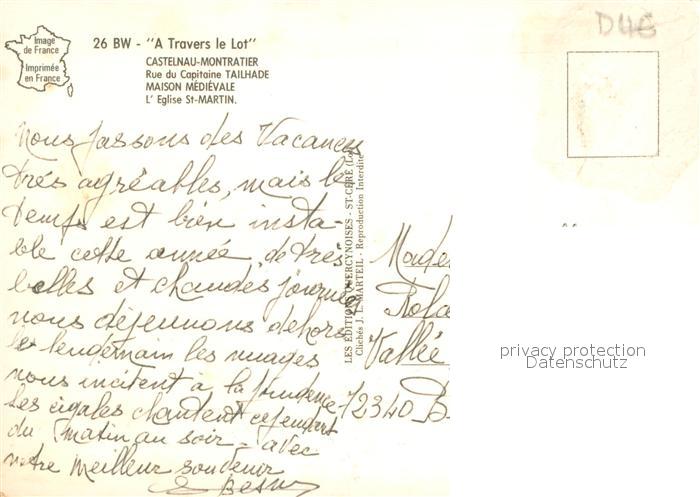 Image
de France
Imprimée
en France
26 BW - "A Travers le Lot"
CASTELNAU-MONTRATIER
Rue du Capitaine TAILHADE
MAISON MÉDIÉVALE
L' Eglise St-MARTIN.
D46
Nous passons des Vacances
très agréables, mais le
temps est bien insta-
ble cette année, de très
belles et chaudes journées
nous déjeunons dehors,
le lendemain les nuages
nous incitent à la prudence
Les cigales chantent cependant
du matin au soir - avec
notre meilleur souvenir
LES EDITIONS QUERCYNOISES - ST-CÉRÉ (Lot)
Clichés J. L. MARTEIL - Reproduction Interdite
Vallée
72340
privacy protection
Datenschutz